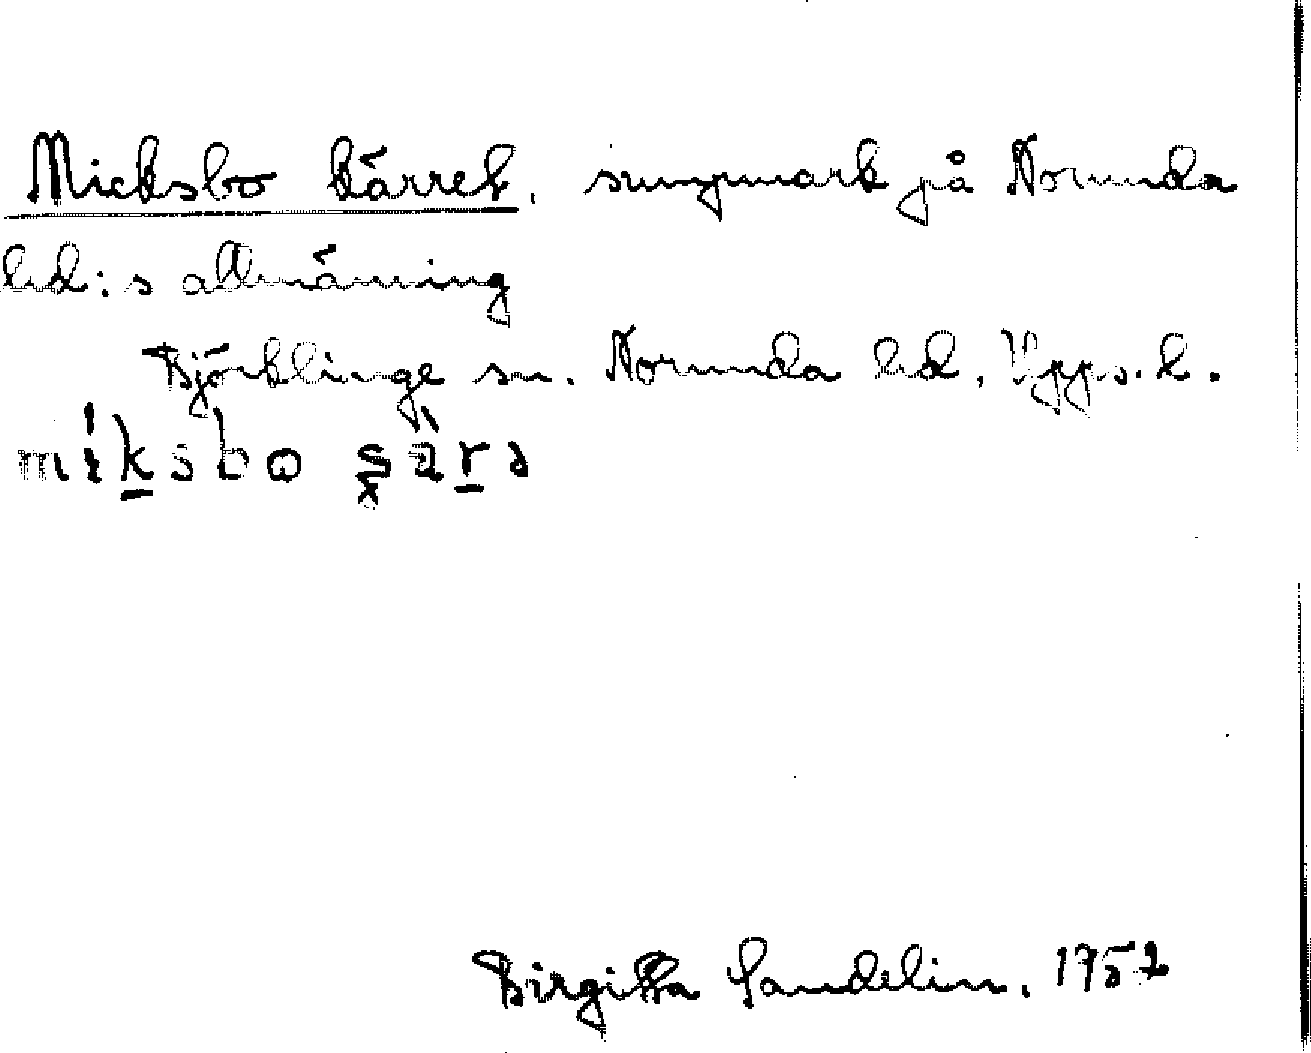 Micksbo kärret, sumpmark på Norunda
hd:s allmänning
Björklinge sn. Norunda hd, Upps. l.
mìksbo
Birgitta Sandelin, 1957